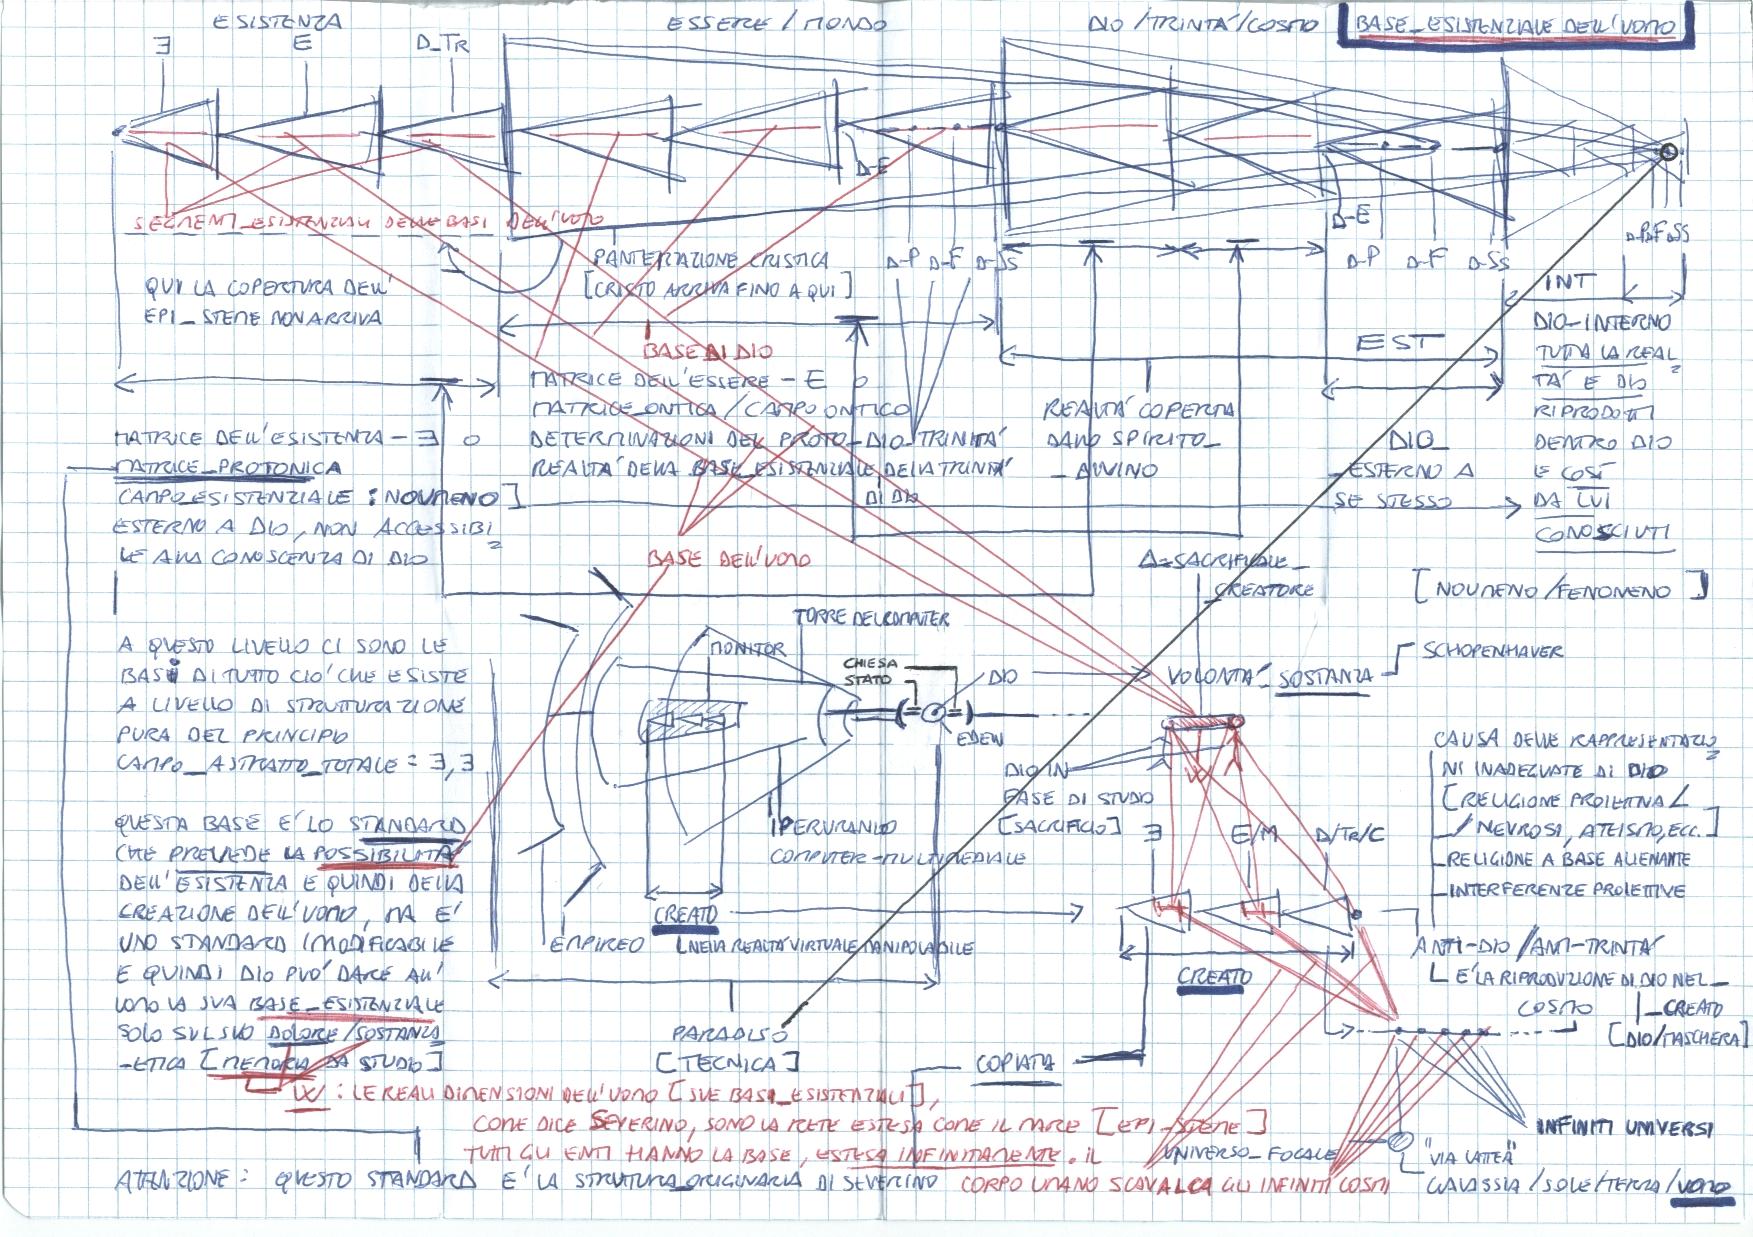 ESISTENZA
ESSERE / MONDO
DIO / TRINITÁ / COSMO
BASE_ESISTENZIALE DELL'UOMO
Ǝ
E
D_TR
D-E
SEGMENTI_ESISTENZIALI DELLE BASI DELL'UOMO
D-E
QUI LA COPERTURA DELL'
EPI_STEME NON ARRIVA
[CRISTO ARRIVA FINO A QUI]
D-P D-F D-SS
D-P D-F D-SS
INT
BASE DI DIO
EST
DIO-INTERNO
TUTTA LA REAL
TÁ E DIO
RIPRODOTTI
DENTRO DIO
E COSÍ
DA LUI
CONOSCIUTI
MATRICE DELL'ESSERE - E O
MATRICE_ONTICA / CAMPO ONTICO
DETERMINAZIONI DEL PROTO_DIO_TRINITÁ
REALTÁ DELLA BASE_ESISTENZIALE DELLA TRINITÁ
DI DIO
REALTÁ COPERTA
DALLO SPIRITO_
_DIVINO
DIO_
ESTERNO A
SE STESSO
MATRICE DELL'ESISTENZA - Ǝ O
MATRICE_PROTONICA
CAMPO_ESISTENZIALE : NOUMENO]
ESTERNO A DIO, NON ACCESSIBI
LE ALLA CONOSCENZA DI DIO
BASE DELL'UOMO
Δ=SACRIFICALE_
_CREATORE
[NOUMENO / FENOMENO]
TORRE DEL COMPUTER
MONITOR
CHIESA
STATO
DIO
EDEN
VOLONTÁ_SOSTANZA
SCHOPENHAUER
A QUESTO LIVELLO CI SONO LE
BASI DI TUTTO CIO' CHE ESISTE
A LIVELLO DI STRUTTURAZIONE
PURA DEL PRINCIPIO
CAMPO_ASTRATTO_TOTALE = Ǝ, Ǝ
QUESTA BASE E' LO STANDARD
CHE PREVEDE LA POSSIBILITA'
DELL'ESISTENZA E QUINDI DELLA
CREAZIONE DELL'UOMO, MA E'
UNO STANDARD IMMODIFICABILE
E QUINDI DIO PUO' DARE ALL'
UOMO LA SUA BASE_ESISTENZIALE
SOLO SUL SUO DOLORE/SOSTANZA
-ETICA [MEMORIA DA STUDIO]
DIO IN
FASE DI STUDIO
[SACRIFICIO]
CAUSA DELLE RAPPRESENTAZIO
NI INADEGUATE DI DIO
[RELIGIONE PROIETTIVA /
/ NEVROSI, ATEISMO, ECC.]
-RELIGIONE A BASE ALIENANTE
-INTERFERENZE PROIETTIVE
IPERURANIO
COMPUTER-MULTIMEDIALE
Ǝ
E/M
D/TR/C
CREATO
EMPIREO
NELLA REALTÁ VIRTUALE MANIPOLABILE
CREATO
ANTI-DIO / ANTI-TRINITÁ
E' LA RIPRODUZIONE DI DIO NEL_
COSMO
_CREATO
[DIO/MASCHERA]
PARADISO
[TECNICA]
COPIATA
W : LE REALI DIMENSIONI DELL'UOMO [SUE BASI_ESISTENZIALI],
COME DICE SEVERINO, SONO LA RETE ESTESA COME IL MARE [EPI_STEME]
TUTTI GLI ENTI HANNO LA BASE, ESTESA INFINITAMENTE. IL
CORPO UMANO SCAVALCA GLI INFINITI COSMI
UNIVERSO_FOCALE
INFINITI UNIVERSI
"VIA LATTEA"
GALASSIA / SOLE / TERRA / UOMO
ATTENZIONE : QUESTO STANDARD E' LA STRUTTURA_ORIGINARIA DI SEVERINO